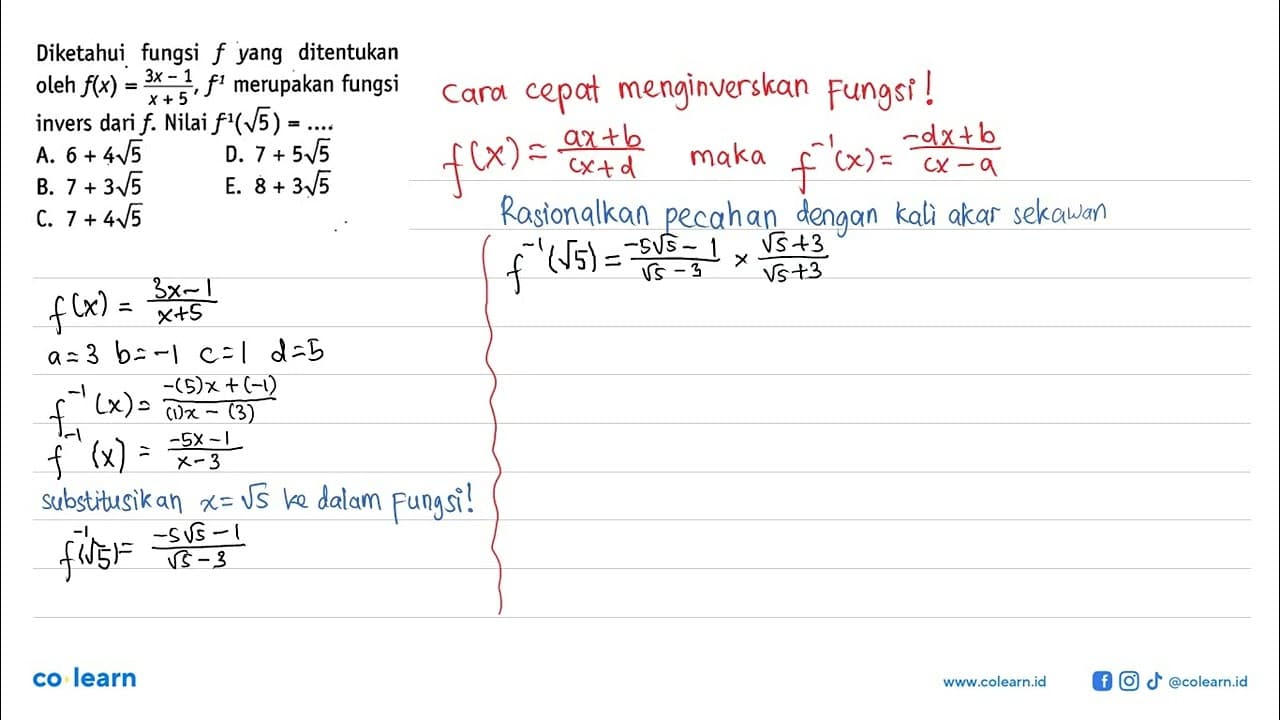 Diketahui fungsi f yang ditentukan
oleh f(x) = \frac{3x - 1}{x + 5}, f¹ merupakan fungsi
invers dari f. Nilai f¹(√5) = ....
A. 6 + 4√5 D. 7 + 5√5
B. 7 + 3√5 E. 8 + 3√5
C. 7 + 4√5
Cara cepat menginverskan Fungsi!
f(x) = \frac{ax+b}{cx+d} maka f⁻¹(x) = \frac{-dx+b}{cx-a}
Rasionalkan pecahan dengan kali akar sekawan
f⁻¹(√5) = \frac{-5√5 - 1}{√5 - 3} × \frac{√5+3}{√5+3}
f(x) = \frac{3x-1}{x+5}
a=3 b=-1 c=1 d=5
f⁻¹(x) = \frac{-(5)x+(-1)}{(1)x-(3)}
f⁻¹(x) = \frac{-5x-1}{x-3}
substitusikan x=√5 ke dalam Fungsi!
f⁻¹(√5) = \frac{-5√5-1}{√5-3}
co·learn
www.colearn.id
@colearn.id